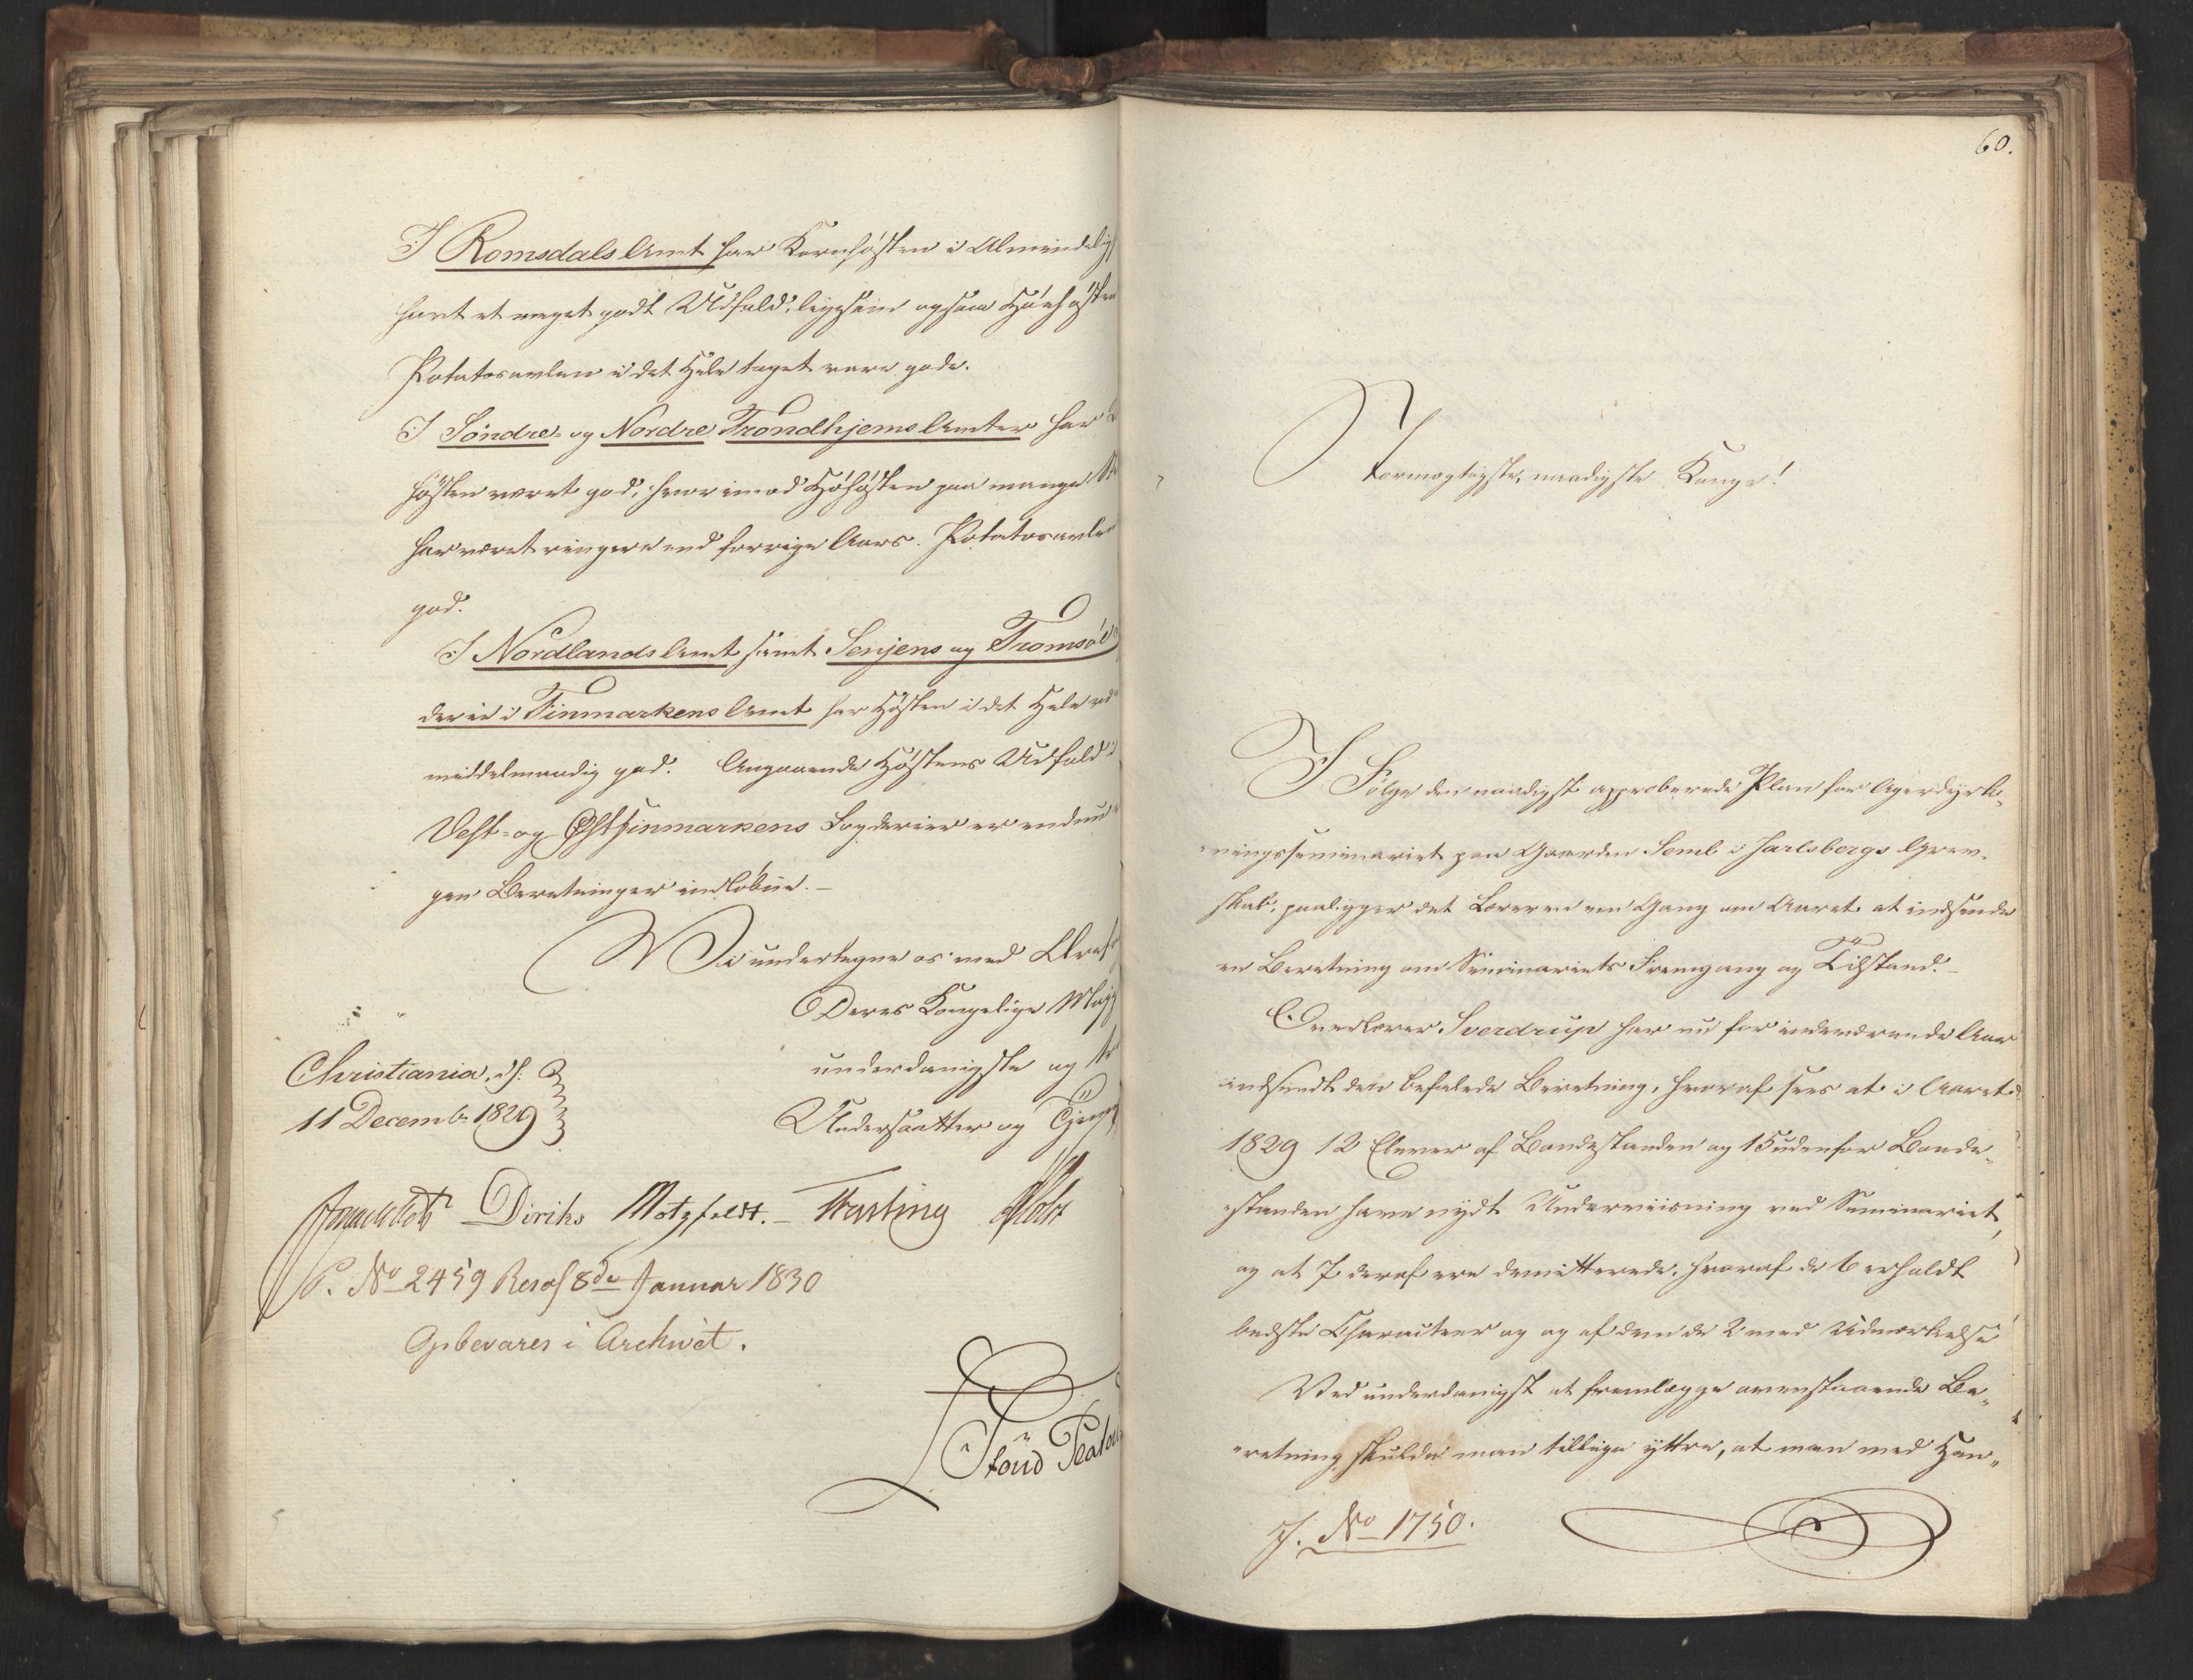 I Romsdals Amt har Kornhøsten i Almindelig
havt et meget godt Udfald, ligesom ogsaa Høehøsten
Potatosavlen i det Hele taget vare gode.
I Söndre- og Nordre Trondhjems Amter har
høsten været god, hvorimod Høhøsten paa mange
har været ringere end forrige Aars. Potatosavlen
god.
I Nordlands Amt samt Senjens og Tromsöe
derie i Finmarkens Amt har Høsten i det Hele
middelmaadig god. Angaaende Høstens Udfald i
Vest- og Østfinmarkens Fogderier er endnu
gen Beretninger indløbne.-
Vi undertegne os med
Deres Kongelige Maj
underdanigste og
Undersaatter og
Christiania, d:
11 Decemb: 1829
Diriks Motzfeldt.- Fasting
P. No 2459 Resol 8de Januar 1830
Opbevares i Archivet.
60.
Stormægtigste, naadigste Konge!
I Følge den naadigst approberede Plan for Agerdyrk-
ningsseminariet paa Gaarden Semb i Jarlsbergs Grev-
skab, paaligger det Læreren een Gang om Aaret at indsende
en Beretning om Seminariets Fremgang og Tilstand.-
Overlærer Sverdrup har nu for indeværende Aar
indsendt den befalede Beretning, hvoraf sees at i Aaret
1829 12 Elever af Bondestanden og 15 udenfor Bonde-
standen have nydt Underviisning ved Seminariet,
og at 7 deraf ere demitterede, hvoraf de 6 erholdt
bedste Characteer og og af dem de 2 med Udmærkelse
Ved underdanigst at fremlægge ovenstaaende Be-
retning skulde man tillige yttre, at man med Hen-
J. No 1750.